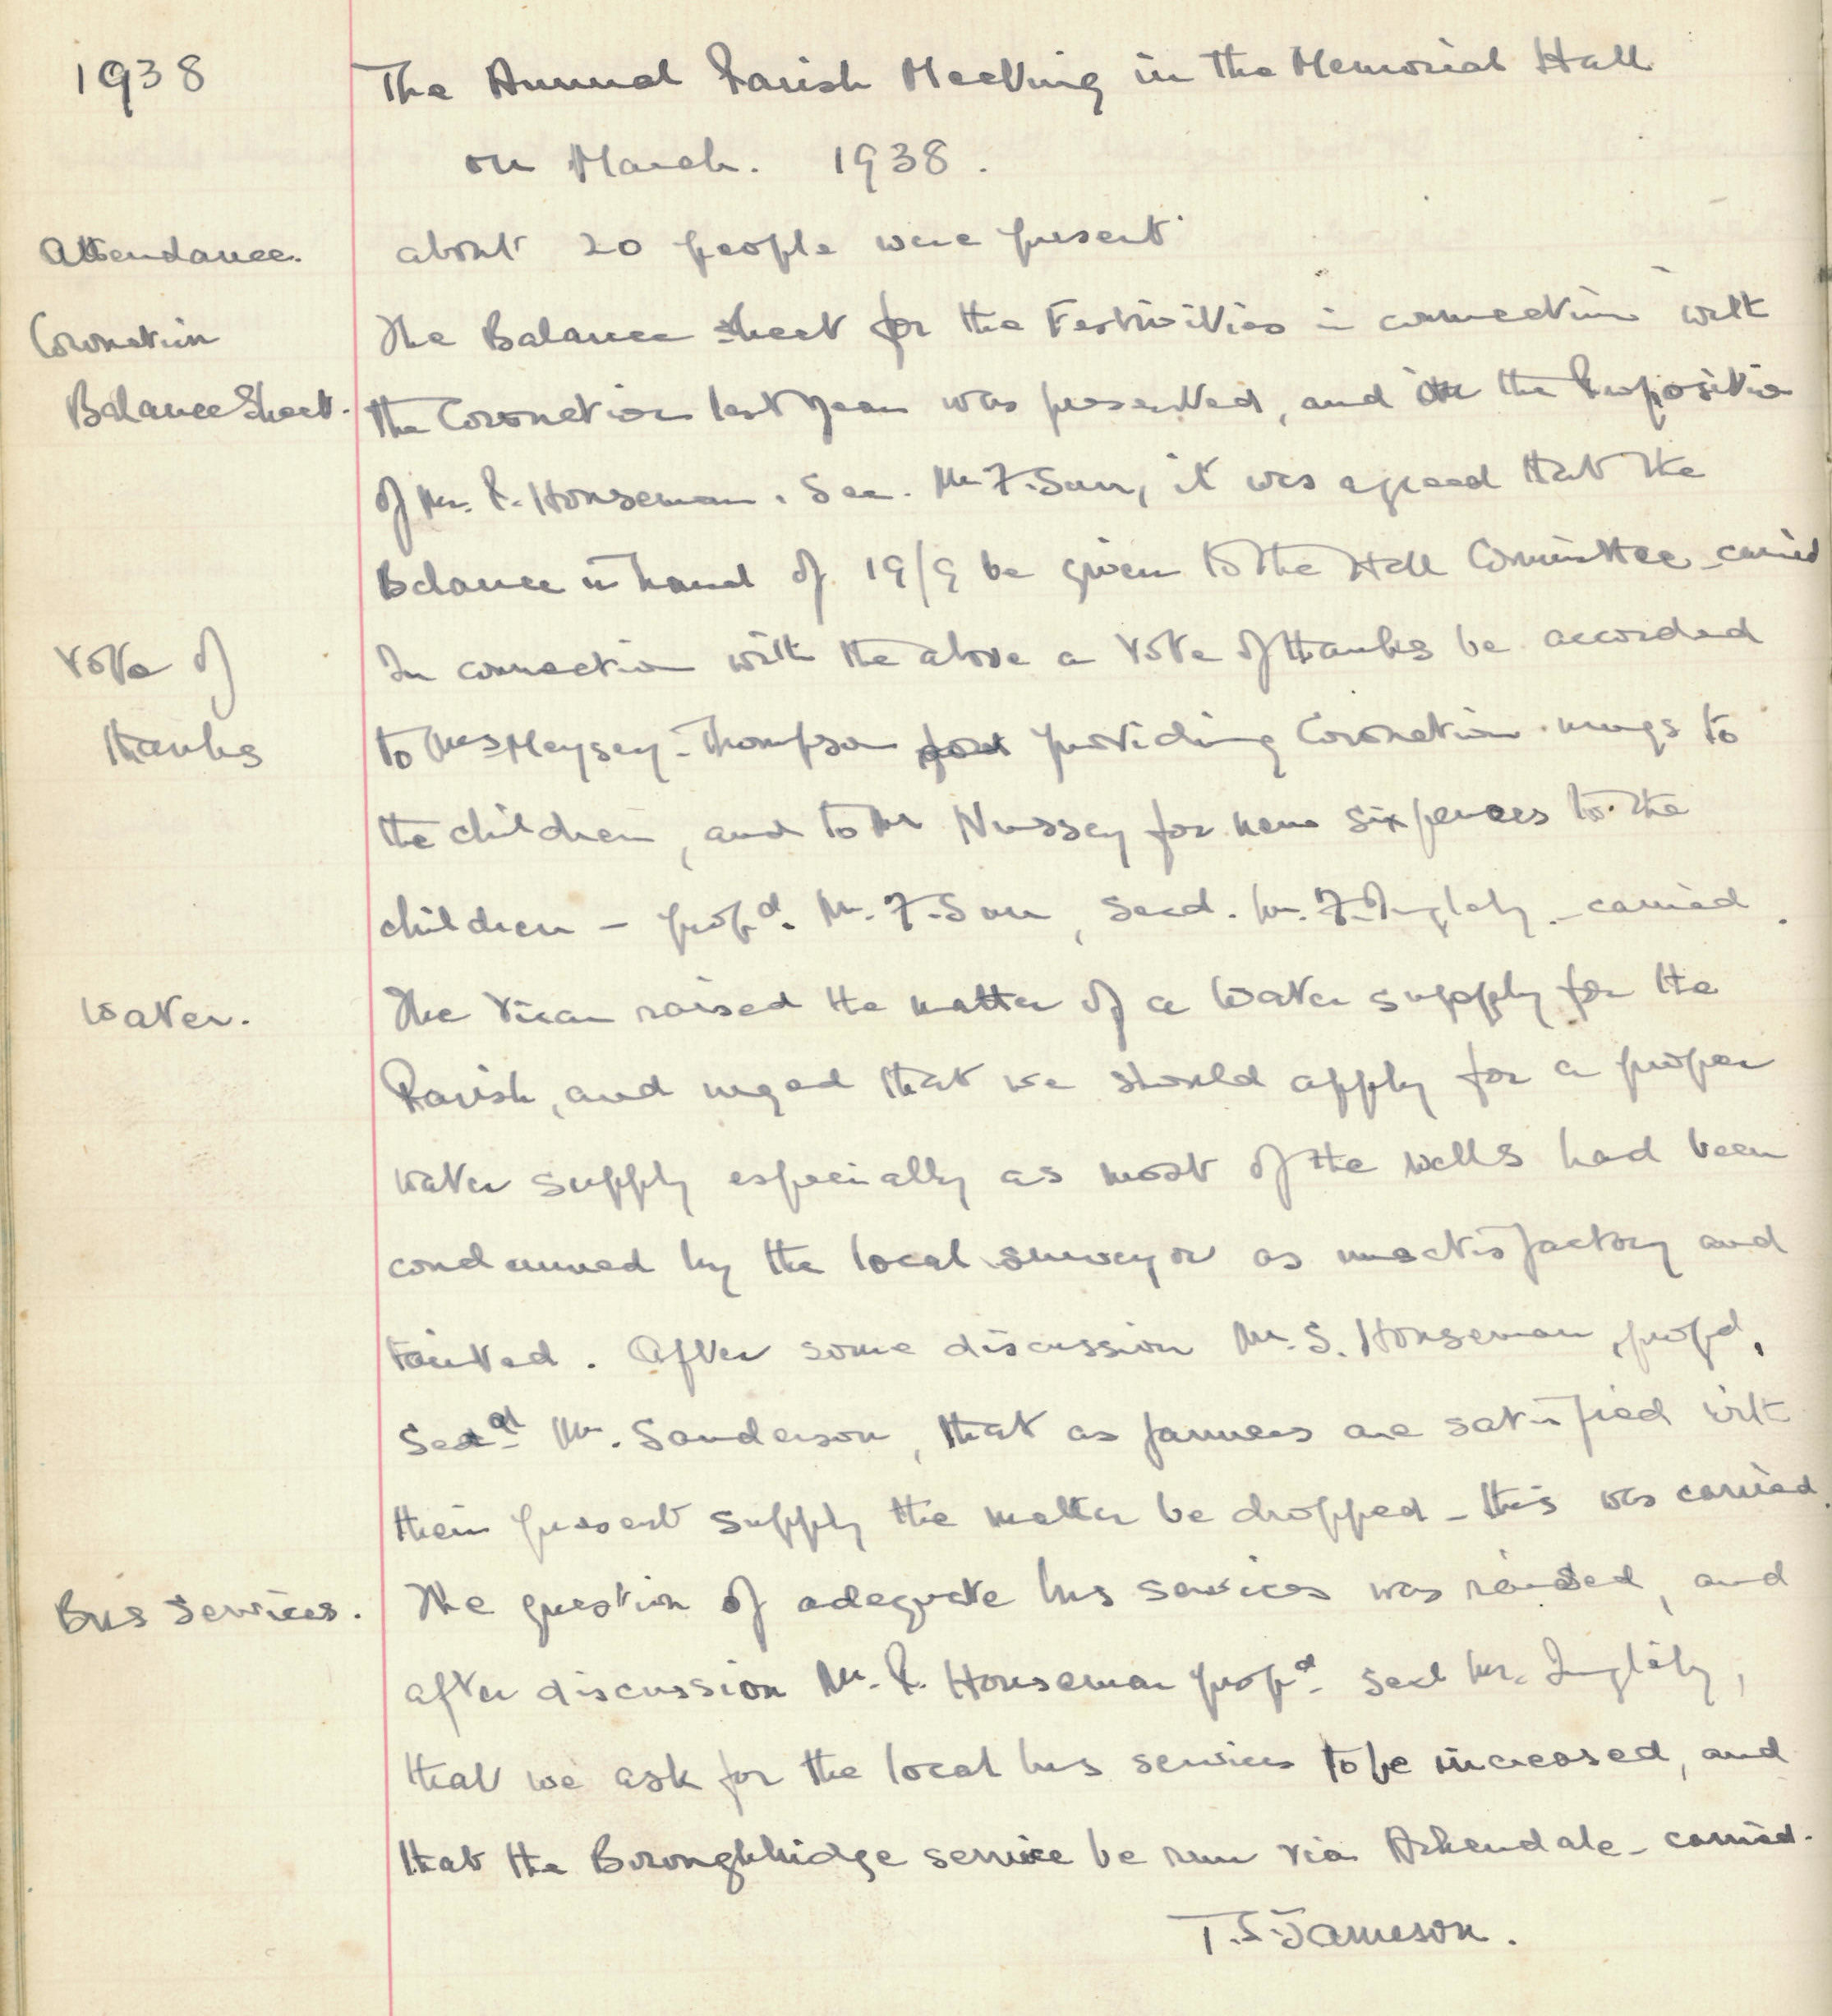 1938 The Annual Parish Meeting in the Memorial Hall
on March. 1938.
Attendance. about 20 people were present
Coronation The Balance Sheet for the Festivities in connection with
Balance Sheet. the Coronation last year was presented, and on the Proposition
of Mr. P. Houseman. Sec. Mr F. Sun, it was agreed that the
Balance in hand of 19/9 be given to the Hall Committee - carried
Vote of In connection with the above a Vote of thanks be accorded
thanks to Mrs Meysey-Thompson for providing Coronation mugs to
the children, and to Mr Nussey for new sixpences to the
children - propd. Mr. F. Sun, Secd. Mr. F. Ingleby - carried.
Water. The Vicar raised the matter of a Water supply for the
Parish, and urged that we should apply for a proper
water supply especially as most of the wells had been
condemned by the local surveyor as unsatisfactory and
tainted. After some discussion Mr. S. Houseman, propd,
Secd Mr. Sanderson, that as farmers are satisfied with
their present supply the matter be dropped - this was carried.
Bus Services. The question of adequate bus services was raised, and
after discussion Mr. P. Houseman propd. Secd Mr. Ingleby,
that we ask for the local bus services to be increased, and
that the Boroughbridge service be run via Arkendale - carried.
T.S. Jameson.